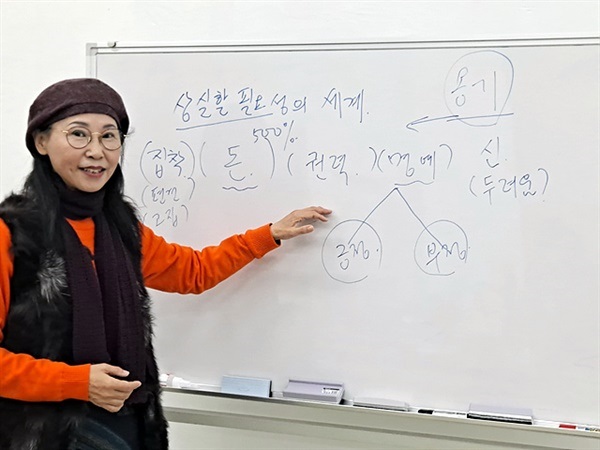 상실할 필요성의 세계.
용기
500%
(집착) (돈.) (권력.) (명예)
신.
(두려움?)
(편견)
(고집)
긍정.
부정.